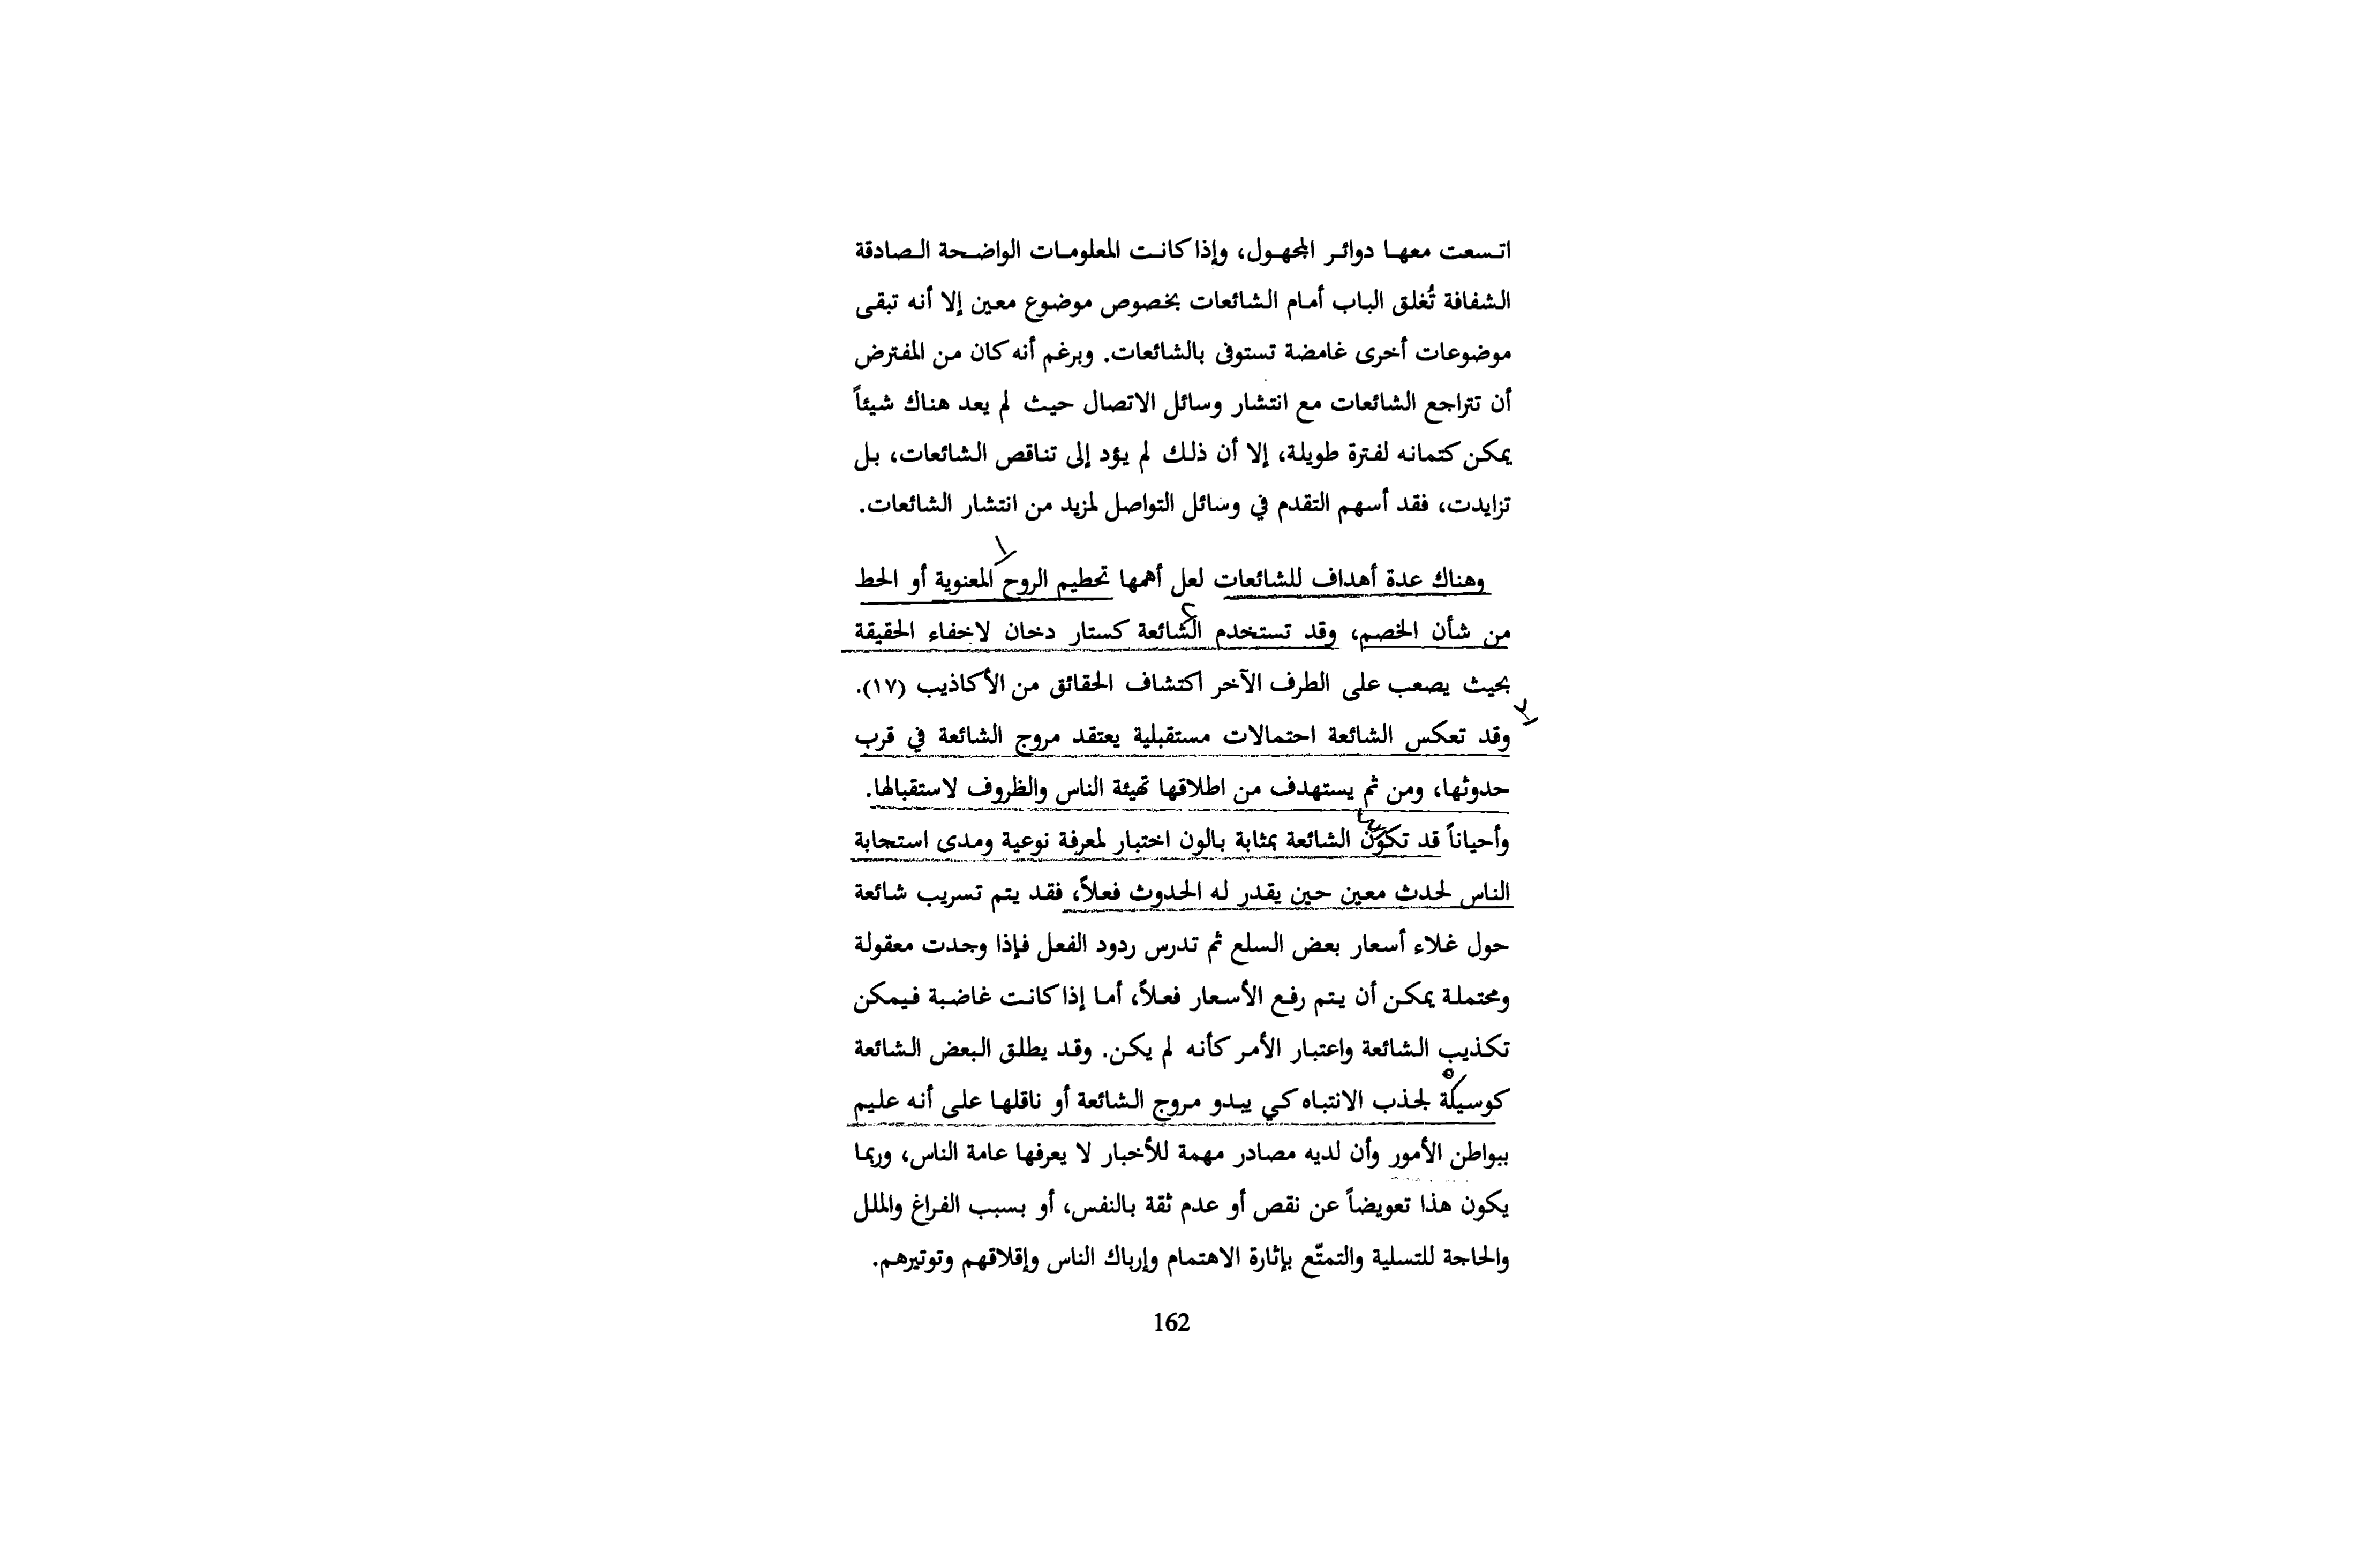 اتسعت معها دوائر المجهول، وإذا كانت المعلومات الواضحة الصادقة
الشفافة تُغلق الباب أمام الشائعات بخصوص موضوع معين إلا أنه تبقى
موضوعات أخرى غامضة تستوفى بالشائعات. وبرغم أنه كان من المفترض
أن تتراجع الشائعات مع انتشار وسائل الاتصال حيث لم يعد هناك شيئاً
يمكن كتمانه لفترة طويلة، إلا أن ذلك لم يؤد إلى تناقص الشائعات، بل
تزايدت، فقد أسهم التقدم في وسائل التواصل لمزيد من انتشار الشائعات.
١
وهناك عدة أهداف للشائعات لعل أهمها تحطيم الروح المعنوية أو الحط
من شأن الخصم، وقد تستخدم الشائعة كستار دخان لاخفاء الحقيقة
بحيث يصعب على الطرف الآخر اكتشاف الحقائق من الأكاذيب (١٧).
وقد تعكس الشائعة احتمالات مستقبلية يعتقد مروج الشائعة في قرب
حدوثها، ومن ثم يستهدف من اطلاقها تهيئة الناس والظروف لاستقبالها.
وأحياناً قد تكون الشائعة بمثابة بالون اختبار لمعرفة نوعية ومدى استجابة
الناس لحدث معين حين يقدر له الحدوث فعلاً، فقد يتم تسريب شائعة
حول غلاء أسعار بعض السلع ثم تدرس ردود الفعل فإذا وجدت معقولة
ومحتملة يمكن أن يتم رفع الأسعار فعلاً، أما إذا كانت غاضبة فيمكن
تكذيب الشائعة واعتبار الأمر كأنه لم يكن. وقد يطلق البعض الشائعة
كوسيلة لجذب الانتباه كي يبدو مروج الشائعة أو ناقلها على أنه عليم
ببواطن الأمور وأن لديه مصادر مهمة للأخبار لا يعرفها عامة الناس، وربما
يكون هذا تعويضاً عن نقص أو عدم ثقة بالنفس، أو بسبب الفراغ والملل
والحاجة للتسلية والتمتّع بإثارة الاهتمام وإرباك الناس وإقلاقهم وتوتيرهم.
162